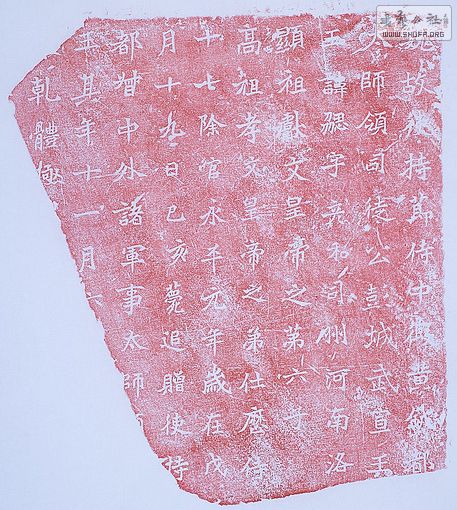 魏故使持節侍中假黃鉞都
太師領司徒公彭城武宣王
王諱勰字彥和司州河南洛
顯祖獻文皇帝之第六子
高祖孝文皇帝之弟仕歷侍
十七除官永平元年歲在戊
月十九日己亥薨追贈使持
都督中外諸軍事太師
王其年十一月六
乾體極
書法公社
WWW.SHUFA.ORG